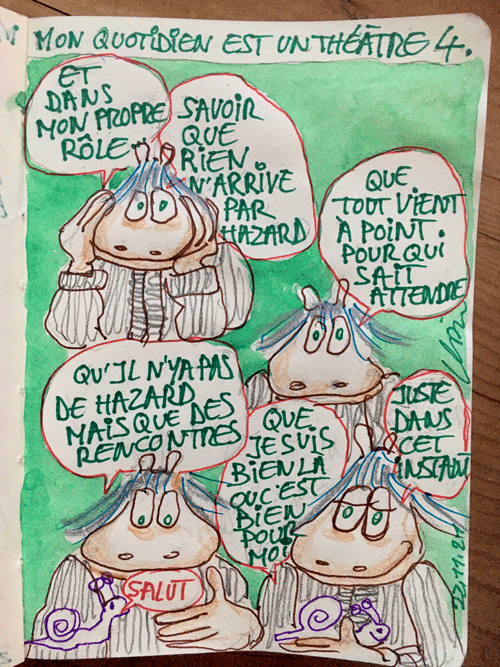 MON QUOTIDIEN EST UN THÉÂTRE 4.
ET
DANS
MON PROPRE
RÔLE...
SAVOIR
QUE
RIEN
N'ARRIVE
PAR
HAZARD
QUE
TOUT VIENT
À POINT.
POUR QUI
SAIT
ATTENDRE
QU'IL N'Y A PAS
DE HAZARD
MAIS QUE DES
RENCONTRES
QUE
JE SUIS
BIEN LÀ
OU C'EST
BIEN
POUR
MOI
JUSTE
DANS
CET
INSTANT
SALUT
22.11.21